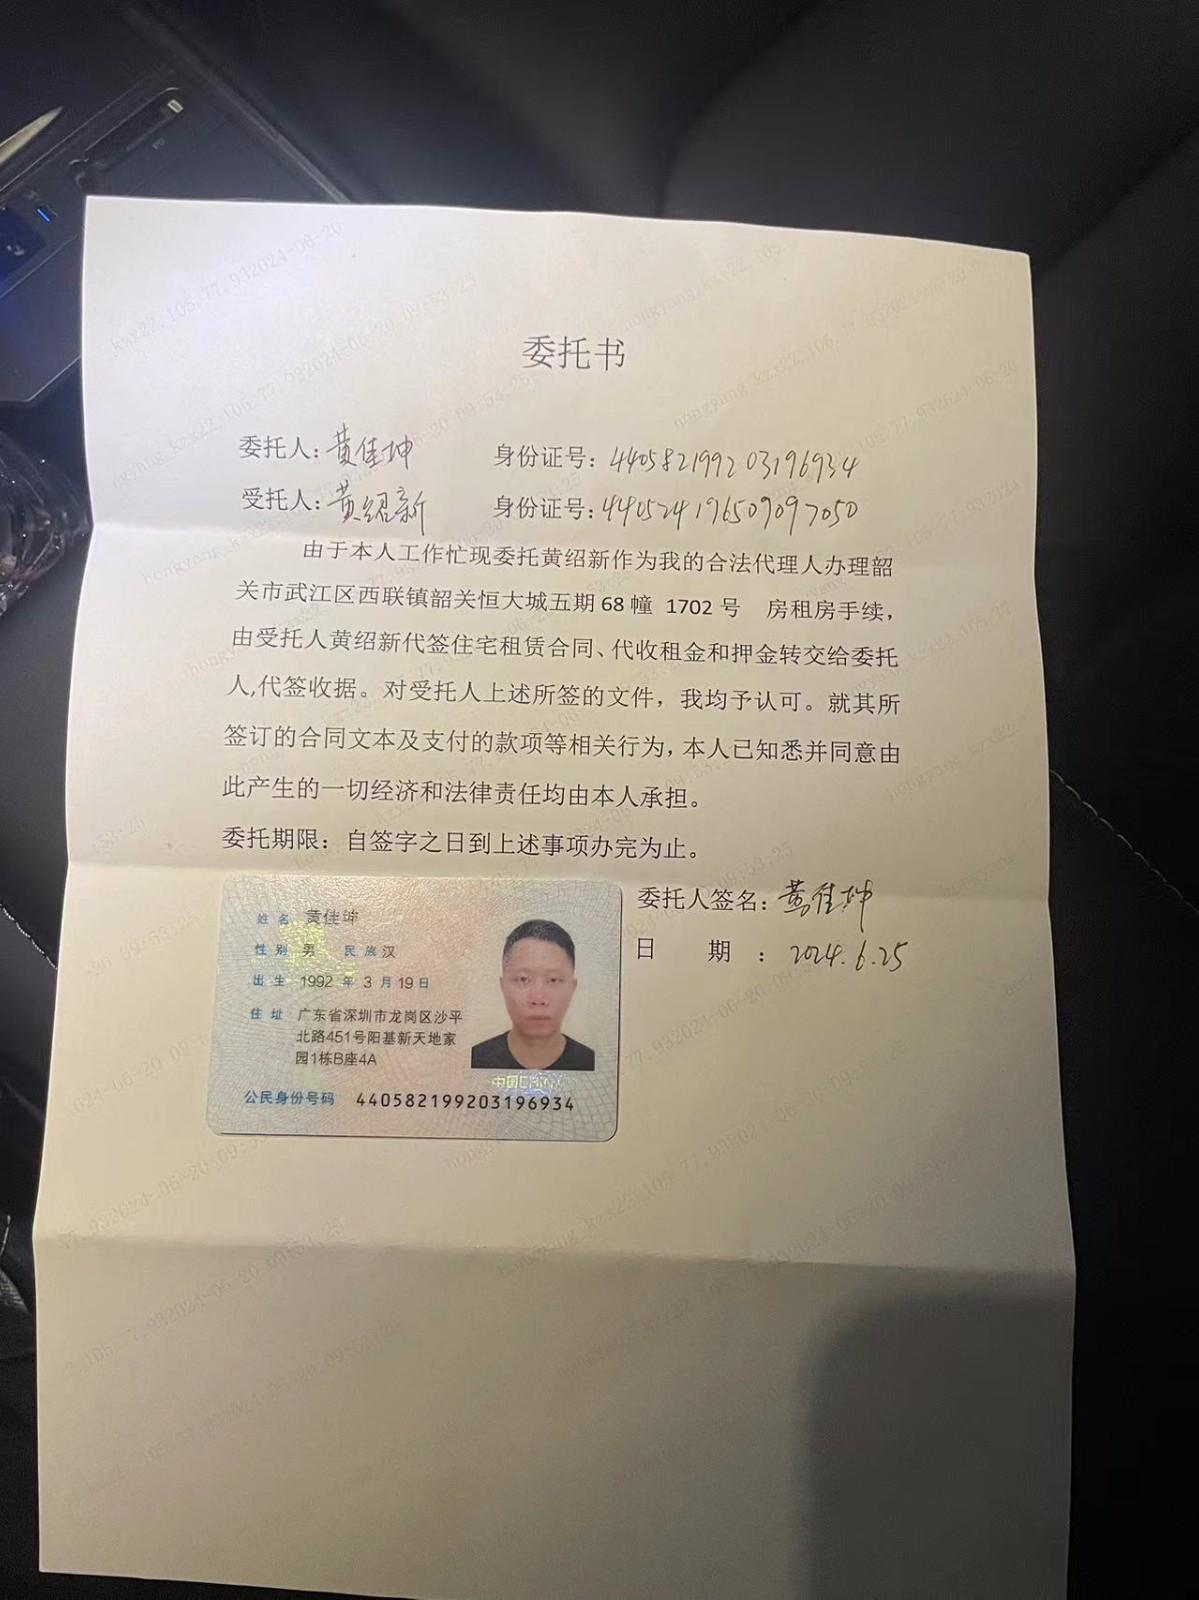 委托书
委托人：黄佳坤 身份证号：440582199203196934
受托人：黄绍新 身份证号：440524196509097050
由于本人工作忙现委托黄绍新作为我的合法代理人办理韶
关市武江区西联镇韶关恒大城五期 68 幢 1702 号 房租房手续，
由受托人黄绍新代签住宅租赁合同、代收租金和押金转交给委托
人,代签收据。对受托人上述所签的文件，我均予认可。就其所
签订的合同文本及支付的款项等相关行为，本人已知悉并同意由
此产生的一切经济和法律责任均由本人承担。
委托期限：自签字之日到上述事项办完为止。
委托人签名：黄佳坤
日 期 ：2024.6.25
姓名 黄佳坤
性别 男 民族 汉
出生 1992 年 3 月 19 日
住址 广东省深圳市龙岗区沙平
北路451号阳基新天地家
园1栋B座4A
中国CHINA
公民身份号码 440582199203196934